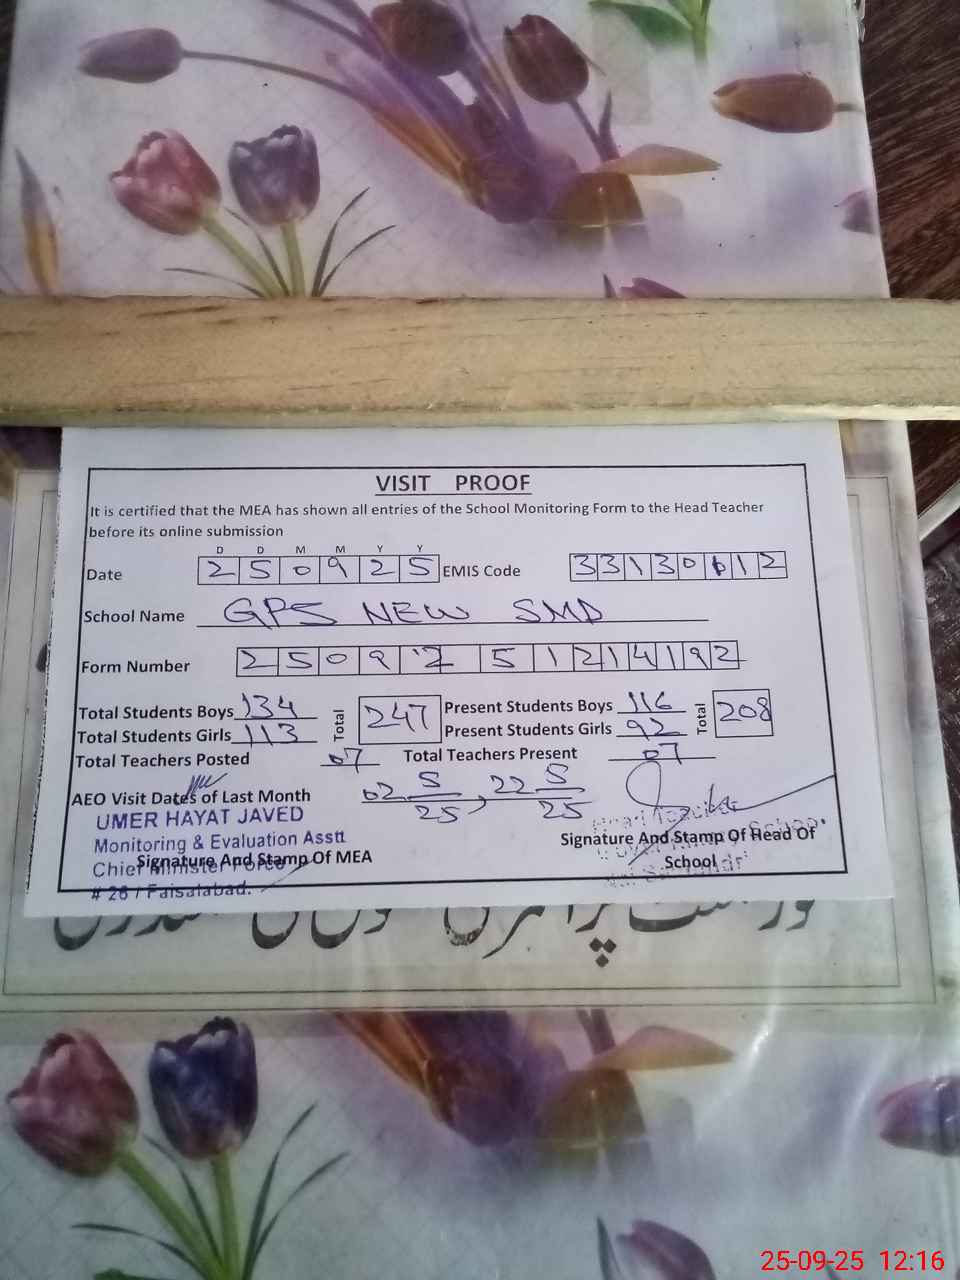 VISIT PROOF
It is certified that the MEA has shown all entries of the School Monitoring Form to the Head Teacher
before its online submission
D D M M Y Y
Date 2 5 0 9 2 5 EMIS Code 3 3 1 3 0 6 1 2
School Name GPS NEW SMD
Form Number 2 5 0 9 2 5 1 2 1 4 1 9 2
Total Students Boys 134 Total 247 Present Students Boys 116 Total 208
Total Students Girls 113 Present Students Girls 92
Total Teachers Posted 07 Total Teachers Present 07
AEO Visit Dates of Last Month 02 S/25, 22 S/25
UMER HAYAT JAVED
Monitoring & Evaluation Asstt
Chief Minister Force
Signature And Stamp Of MEA
# 26 / Faisalabad.
Signature And Stamp Of Head Of
School
25-09-25 12:16